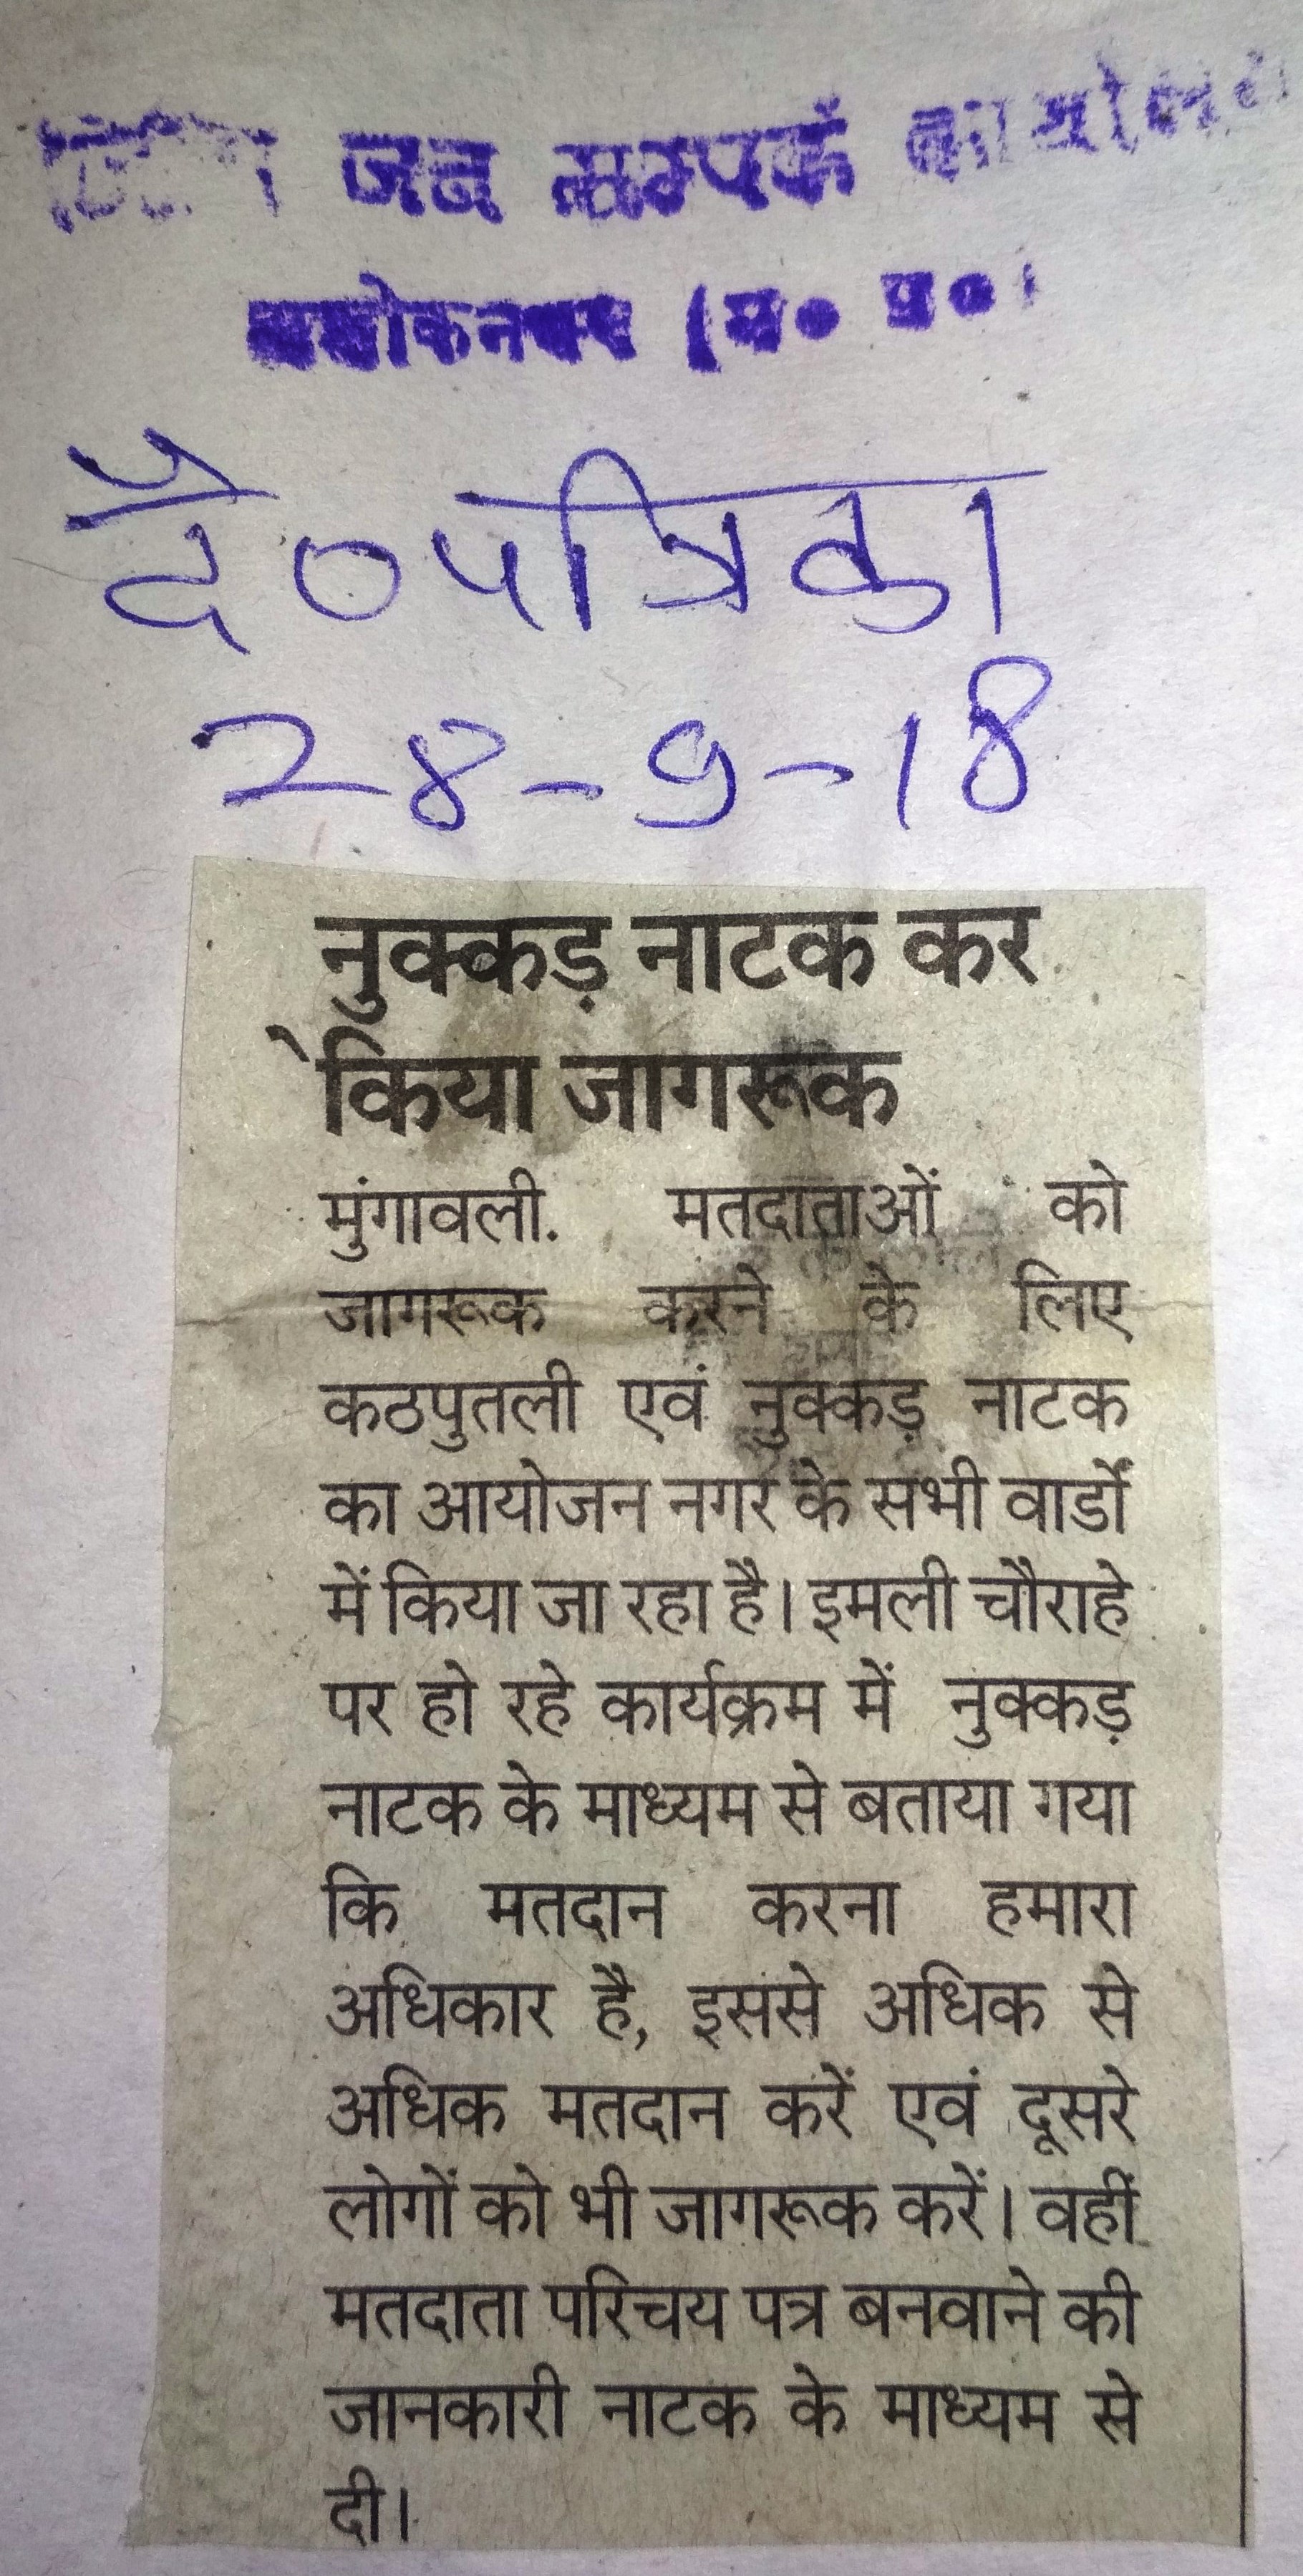 जन सम्पर्क कार्यालय
अशोकनगर (म० प्र०)
दै०पत्रिका
28-9-18
नुक्कड़ नाटक कर
किया जागरूक
मुंगावली. मतदाताओं को
जागरूक करने के लिए
कठपुतली एवं नुक्कड़ नाटक
का आयोजन नगर के सभी वार्डों
में किया जा रहा है। इमली चौराहे
पर हो रहे कार्यक्रम में नुक्कड़
नाटक के माध्यम से बताया गया
कि मतदान करना हमारा
अधिकार है, इससे अधिक से
अधिक मतदान करें एवं दूसरे
लोगों को भी जागरूक करें। वहीं
मतदाता परिचय पत्र बनवाने की
जानकारी नाटक के माध्यम से
दी।